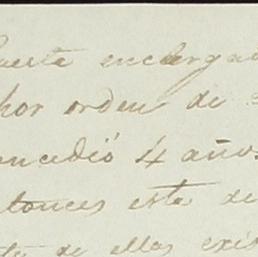 puesta encarga
por orden de
oncedió 4 años
ntonces esta de
te de ellas exis